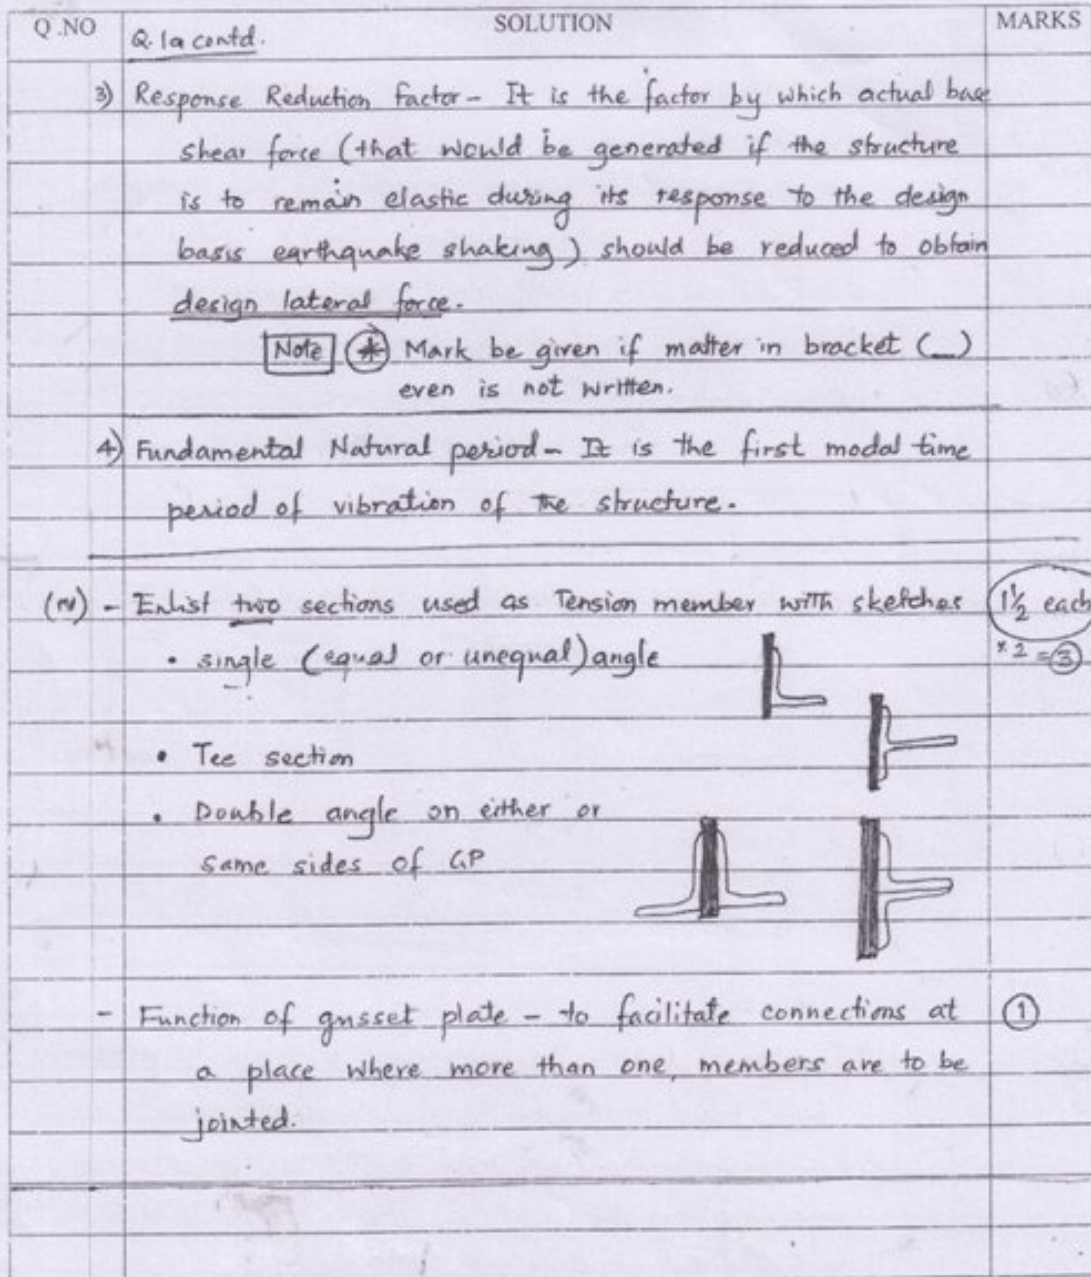 Q.NO SOLUTION MARKS
Q.1a contd.
3) Response Reduction factor - It is the factor by which actual base
shear force (that would be generated if the structure
is to remain elastic during its response to the design
basis earthquake shaking) should be reduced to obtain
design lateral force.
Note * Mark be given if matter in bracket (_)
even is not written.
4) Fundamental Natural period - It is the first modal time
period of vibration of the structure.
(iv) - Enlist two sections used as Tension member with sketches 1½ each
• single (equal or unequal) angle × 2 = 3
• Tee section
• Double angle on either or
same sides of GP
- Function of gusset plate - to facilitate connections at 1
a place where more than one, members are to be
jointed.